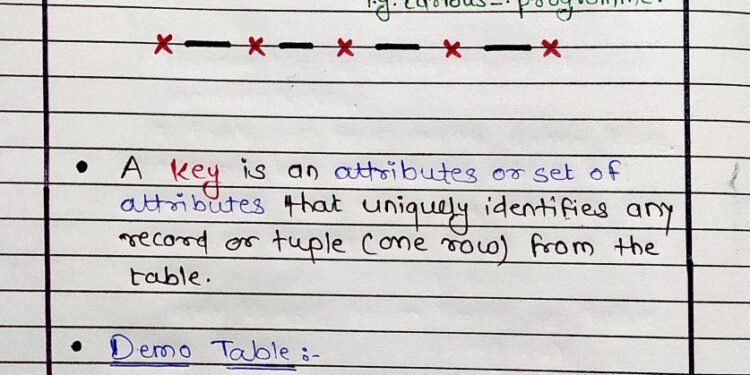 • A key is an attributes or set of
attributes that uniquely identifies any
record or tuple (one row) from the
table.
• Demo Table :-